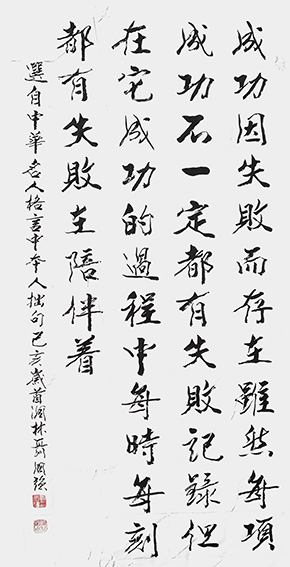 成功因失敗而存在雖然每項
成功不一定都有失敗記錄但
在它成功的過程中每時每刻
都有失敗在陪伴着
選自中華名人格言中本人拙句己亥歲首